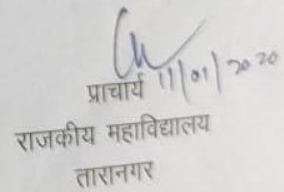 प्राचार्य 11/01/2020
राजकीय महाविद्यालय
तारानगर